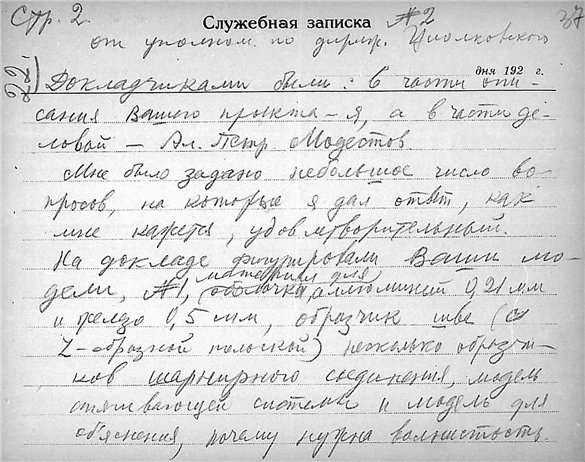 Стр. 2 Служебная записка №2 37
от уполном. по дириж. Циолковского
22) дня 192 г.
Докладчиками были: в части опи-
сания Вашего проекта – я, а в части де-
ловой – Ал. Петр. Модестов.
Мне было задано небольшое число во-
просов, на которые я дал ответ, как
мне кажется, удовлетворительный.
На докладе фигурировали Ваши мо-
дели, №1, материал для
оболочки, аллюминий 0,21 мм
и железо 0,5 мм, образчик шва (с
Z-образной полоской) несколько образчи-
ков шарнирного соединения, модель
стягивающей системы и модель для
объяснения, почему нужна волнистость.